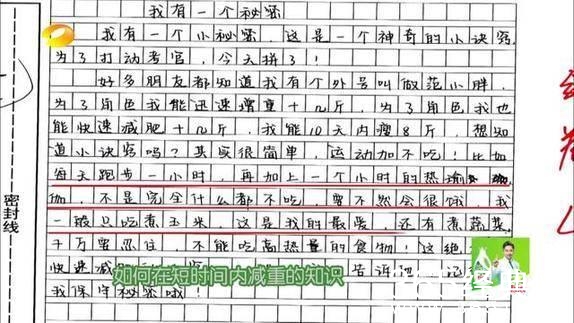 我有一个秘密
我有一个小秘密,这是一个神奇的小诀窍,
为了打动考官,今天拼了!
好多朋友都知道我有个外号叫做范小胖,
为了角色我能迅速增重十几斤,为了角色我也
能快速减肥十几斤,我能10天内瘦8斤,想知
道小诀窍吗?其实很简单,运动加不吃!比如
每天跑步一小时,再加上一个小时的热瑜
伽,不是完全什么都不吃,要不然会很饿!我
一般只吃煮玉米,这是我的最爱,还有煮蔬菜
千万要忍住,不能吃高热量的食物!这绝
快速减
告诉
我保守秘密哦!
如何在短时间内减重的知识
密封线